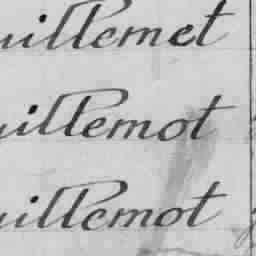 uillemet
uillemot
uillemot